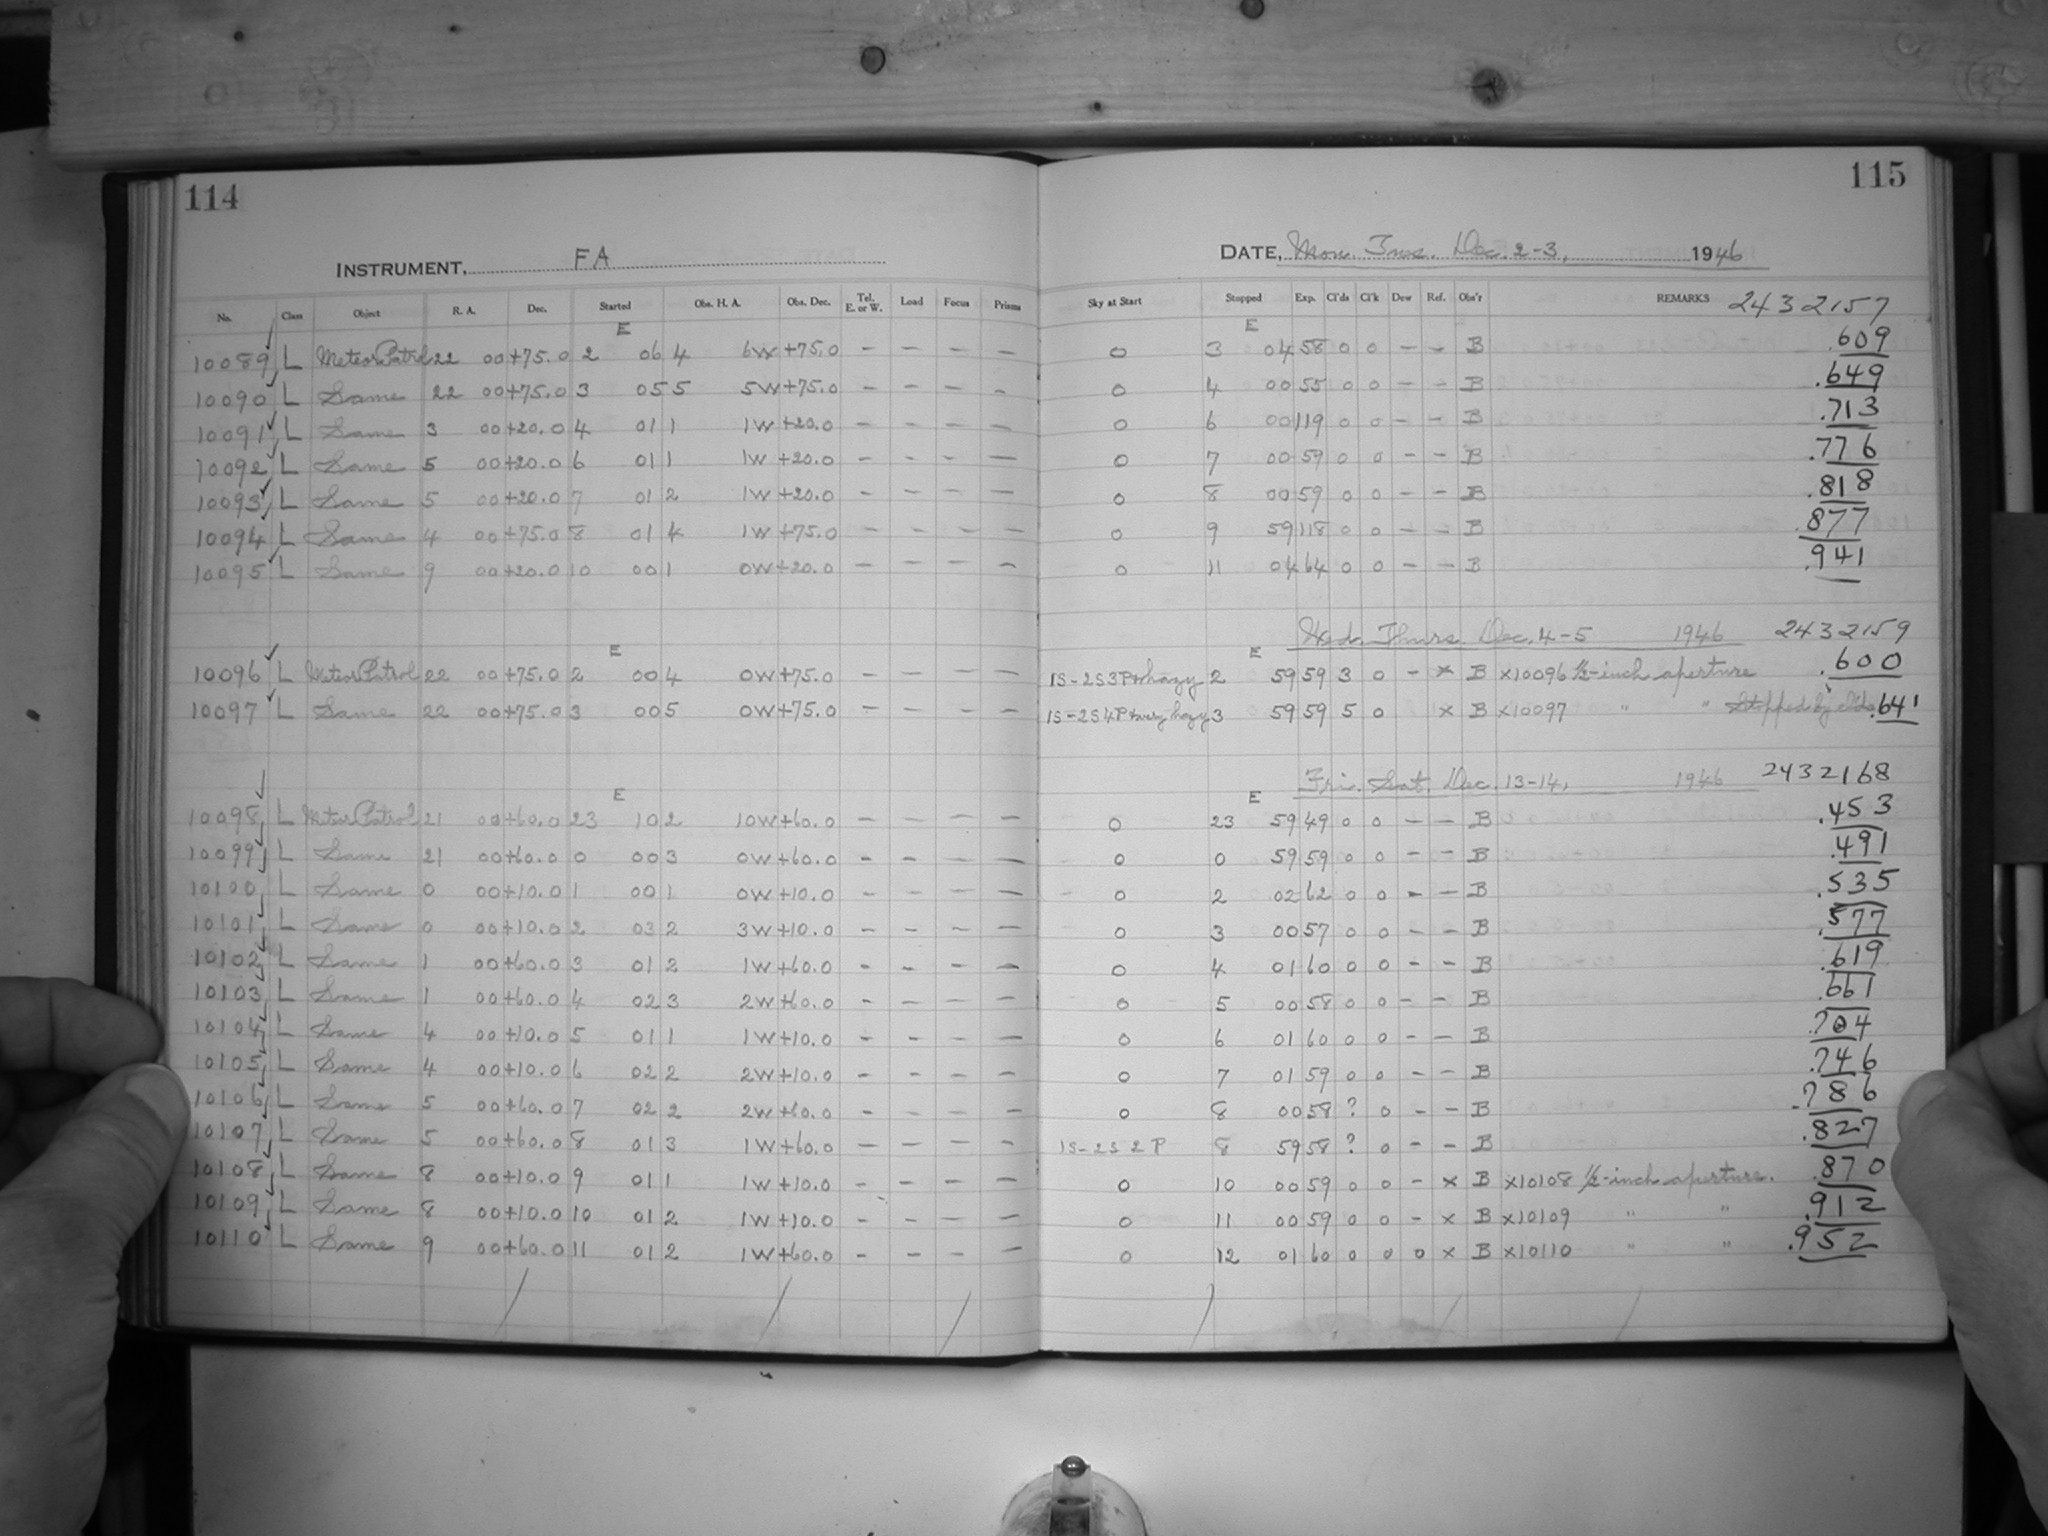 114
INSTRUMENT, FA
No. Class Object R. A. Dec. Started Obs. H. A. Obs. Dec. Tel. E. or W. Load Focus Prisms
E
10089 L Meteor Patrol 22 00 +75.0 2 06 4 6W +75.0 - - - -
10090 L Same 22 00 +75.0 3 05 5 5W +75.0 - - - -
10091 L Same 3 00 +20.0 4 01 1 1W +20.0 - - - -
10092 L Same 5 00 +20.0 6 01 1 1W +20.0 - - - -
10093 L Same 5 00 +20.0 7 01 2 1W +20.0 - - - -
10094 L Same 4 00 +75.0 8 01 4 1W +75.0 - - - -
10095 L Same 9 00 +20.0 10 00 1 0W +20.0 - - - -
E
10096 L Meteor Patrol 22 00 +75.0 2 00 4 0W +75.0 - - - -
10097 L Same 22 00 +75.0 3 00 5 0W +75.0 - - - -
E
10098 L Meteor Patrol 21 00 +60.0 23 10 2 10W +60.0 - - - -
10099 L Same 21 00 +60.0 0 00 3 0W +60.0 - - - -
10100 L Same 0 00 +10.0 1 00 1 0W +10.0 - - - -
10101 L Same 0 00 +10.0 2 03 2 3W +10.0 - - - -
10102 L Same 1 00 +60.0 3 01 2 1W +60.0 - - - -
10103 L Same 1 00 +60.0 4 02 3 2W +60.0 - - - -
10104 L Same 4 00 +10.0 5 01 1 1W +10.0 - - - -
10105 L Same 4 00 +10.0 6 02 2 2W +10.0 - - - -
10106 L Same 5 00 +60.0 7 02 2 2W +60.0 - - - -
10107 L Same 5 00 +60.0 8 01 3 1W +60.0 - - - -
10108 L Same 8 00 +10.0 9 01 1 1W +10.0 - - - -
10109 L Same 8 00 +10.0 10 01 2 1W +10.0 - - - -
10110 L Same 9 00 +60.0 11 01 2 1W +60.0 - - - -
115
DATE, Mon. Tues. Dec. 2-3, 1946
Sky at Start Stopped Exp. Cl'ds Cl'k Dew Ref. Obs'r REMARKS 2432157
E
0 3 04 58 0 0 - - B .609
0 4 00 55 0 0 - - B .649
0 6 00 119 0 0 - - B .713
0 7 00 59 0 0 - - B .776
0 8 00 59 0 0 - - B .818
0 9 59 118 0 0 - - B .877
0 11 04 64 0 0 - - B .941
Wed. Thurs. Dec. 4-5 1946 2432159
E
1S-2S3P+hazy 2 59 59 3 0 - × B ×10096 1/2-inch aperture .600
1S-2S4P+very hazy 3 59 59 5 0 × B ×10097 " " Stopped by clds .641
Fri. Sat. Dec. 13-14, 1946 2432168
E
0 23 59 49 0 0 - - B .453
0 0 59 59 0 0 - - B .491
0 2 02 62 0 0 - - B .535
0 3 00 57 0 0 - - B .577
0 4 01 60 0 0 - - B .619
0 5 00 58 0 0 - - B .661
0 6 01 60 0 0 - - B .704
0 7 01 59 0 0 - - B .746
0 8 00 58 ? 0 - - B .786
1S-2S 2P 8 59 58 ? 0 - - B .827
0 10 00 59 0 0 - × B ×10108 1/2-inch aperture. .870
0 11 00 59 0 0 - × B ×10109 " " .912
0 12 01 60 0 0 0 × B ×10110 " " .952